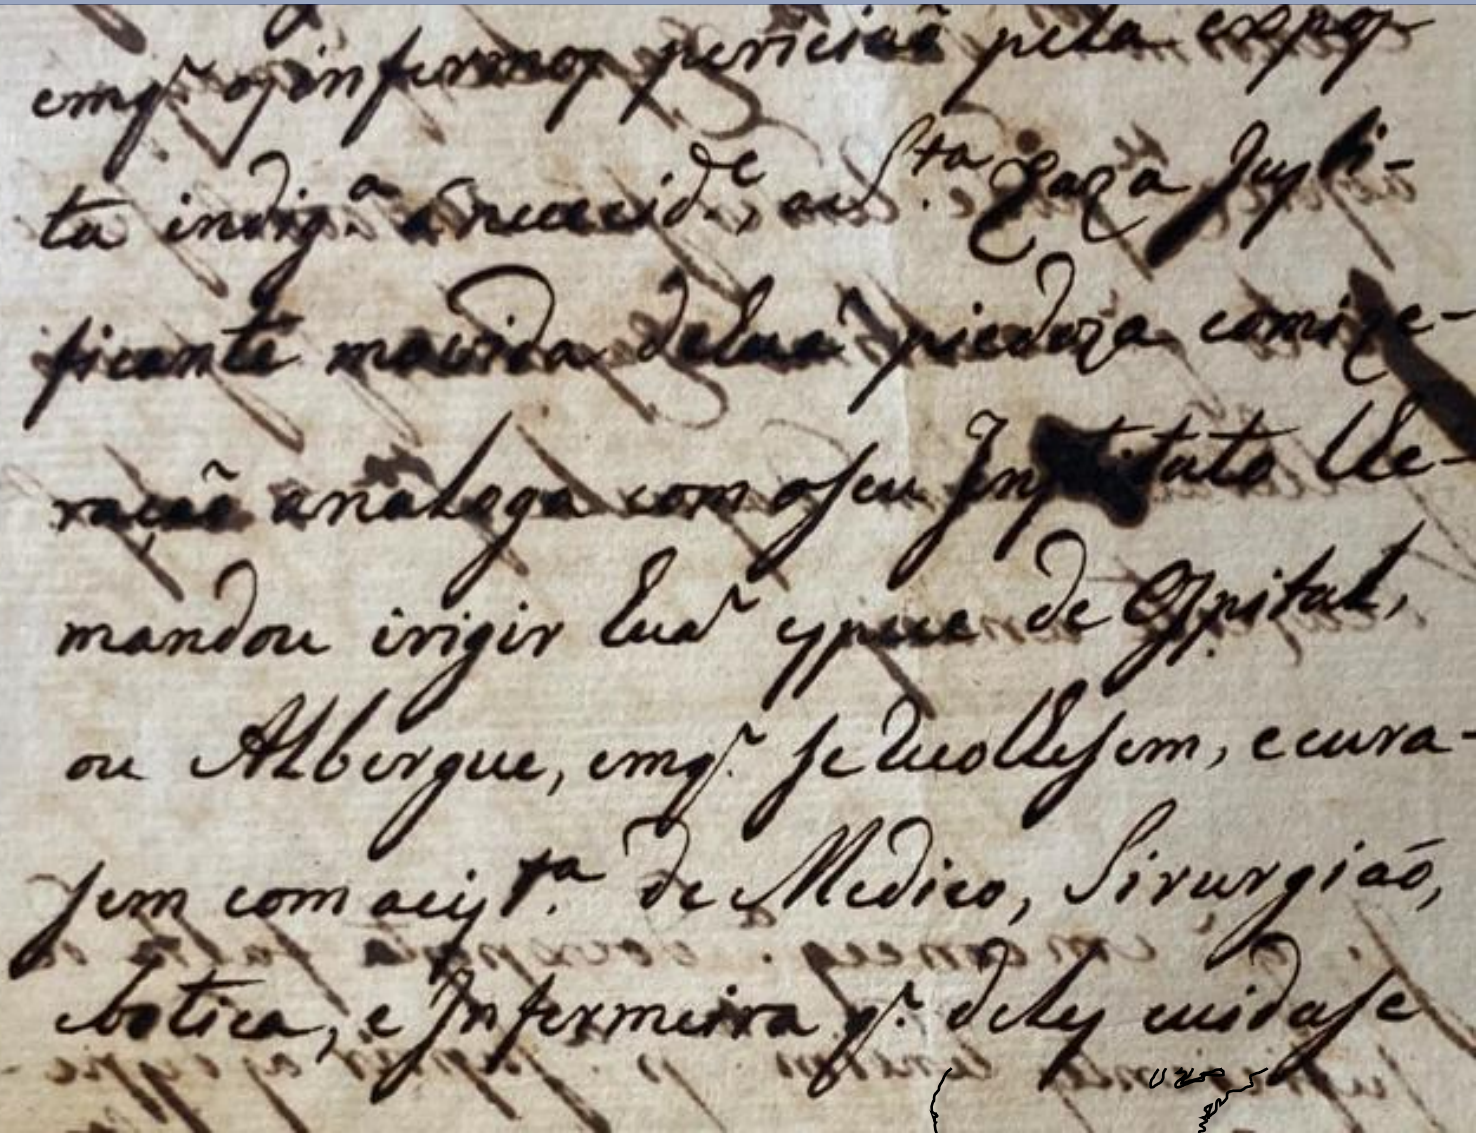 emq.̃ os infermos periciaõ pela expos
ta indig.ª e nececid.e, a S.ta Caza Justi-
ficante movida de sua piedoza comize-
raçaõ analoga com o seu Instituto He-
mandou irigir huã especie de Ospital,
ou Albergue, emq.̃ se recolhesem, e cura-
sem com acist.ª de Medico, Sirurgiaõ,
botica, e Infermeira q.̃ deles cuidase